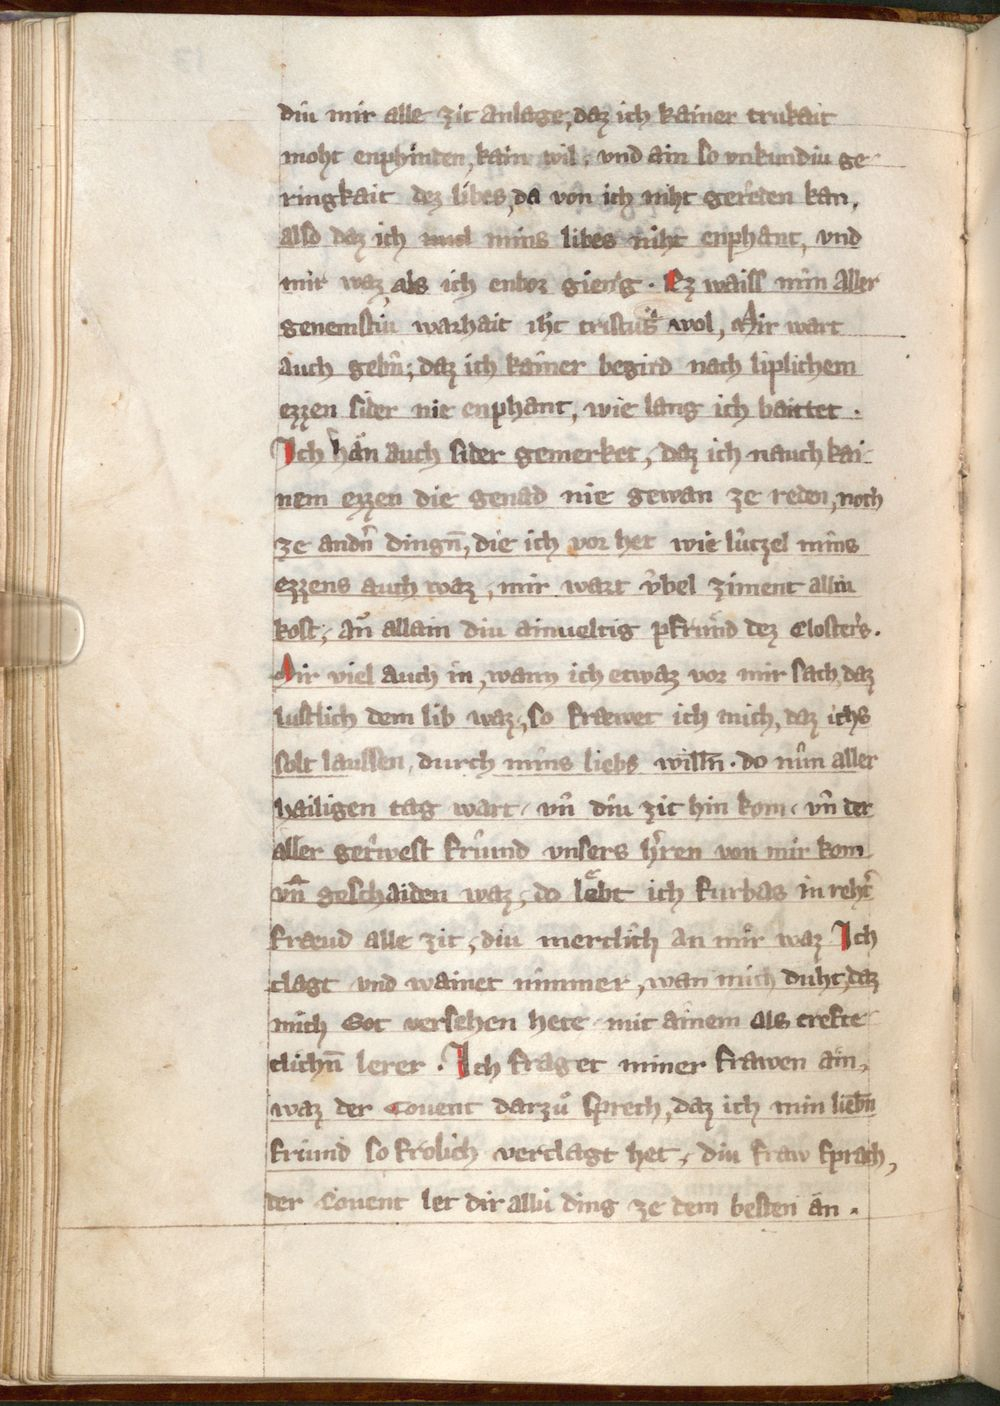 diu mir alle zit anlage, daz ich kainer trukait
moht enphinden, kain wil, vnd ain so vnkundiu ge-
ringkait dez libes, da von ich niht gereden kan,
also daz ich mins libes niht enphant, vnd
mir waz als ich enbor gieng. Ez waiss min aller
genemstiu warhait iħc cristus wol, Mir wart
auch gebn̄, daz ich kainer begird nach liplichem
ezzen sider nie enphant, wie lang ich baittet.
Ich hån auch sider gemerket, daz ich nauch kai-
nem ezzen die genad nie gewan ze reden, noch
ze andn̄ dingn̄, die ich vor het wie lützel mins
ezzens auch waz, mir wart v̂bel ziment alliu
kost, an̄ allain diu ainueltig pfrund dez Closters.
Mir viel auch in, wann ich etwaz vor mir sach, daz
lustlich dem lib waz, so fræwet ich mich, daz ichs
solt laussen, durch mins liebs willn̄. do nun aller
hailigen tag wart, vn̄ diu zit hin kom, vn̄ der
aller getrwest friund vnsers h̄ren von mir kom
vn̄ geschaiden waz, do lebt ich furbas in reht̄
fræud alle zit, diu merclich an mir waz Ich
clagt vnd wainet nimmer, wan mich duht, daz
mich Got versehen hete mit ainem als crefte-
clichn̄ lerer. Ich fraget miner frawen ain,
waz der Couent darzů sprech, daz ich min liebn̄
friund so frolich verclagt het, diu fraw sprach,
der Couent let dir alliu ding ze dem besten an.